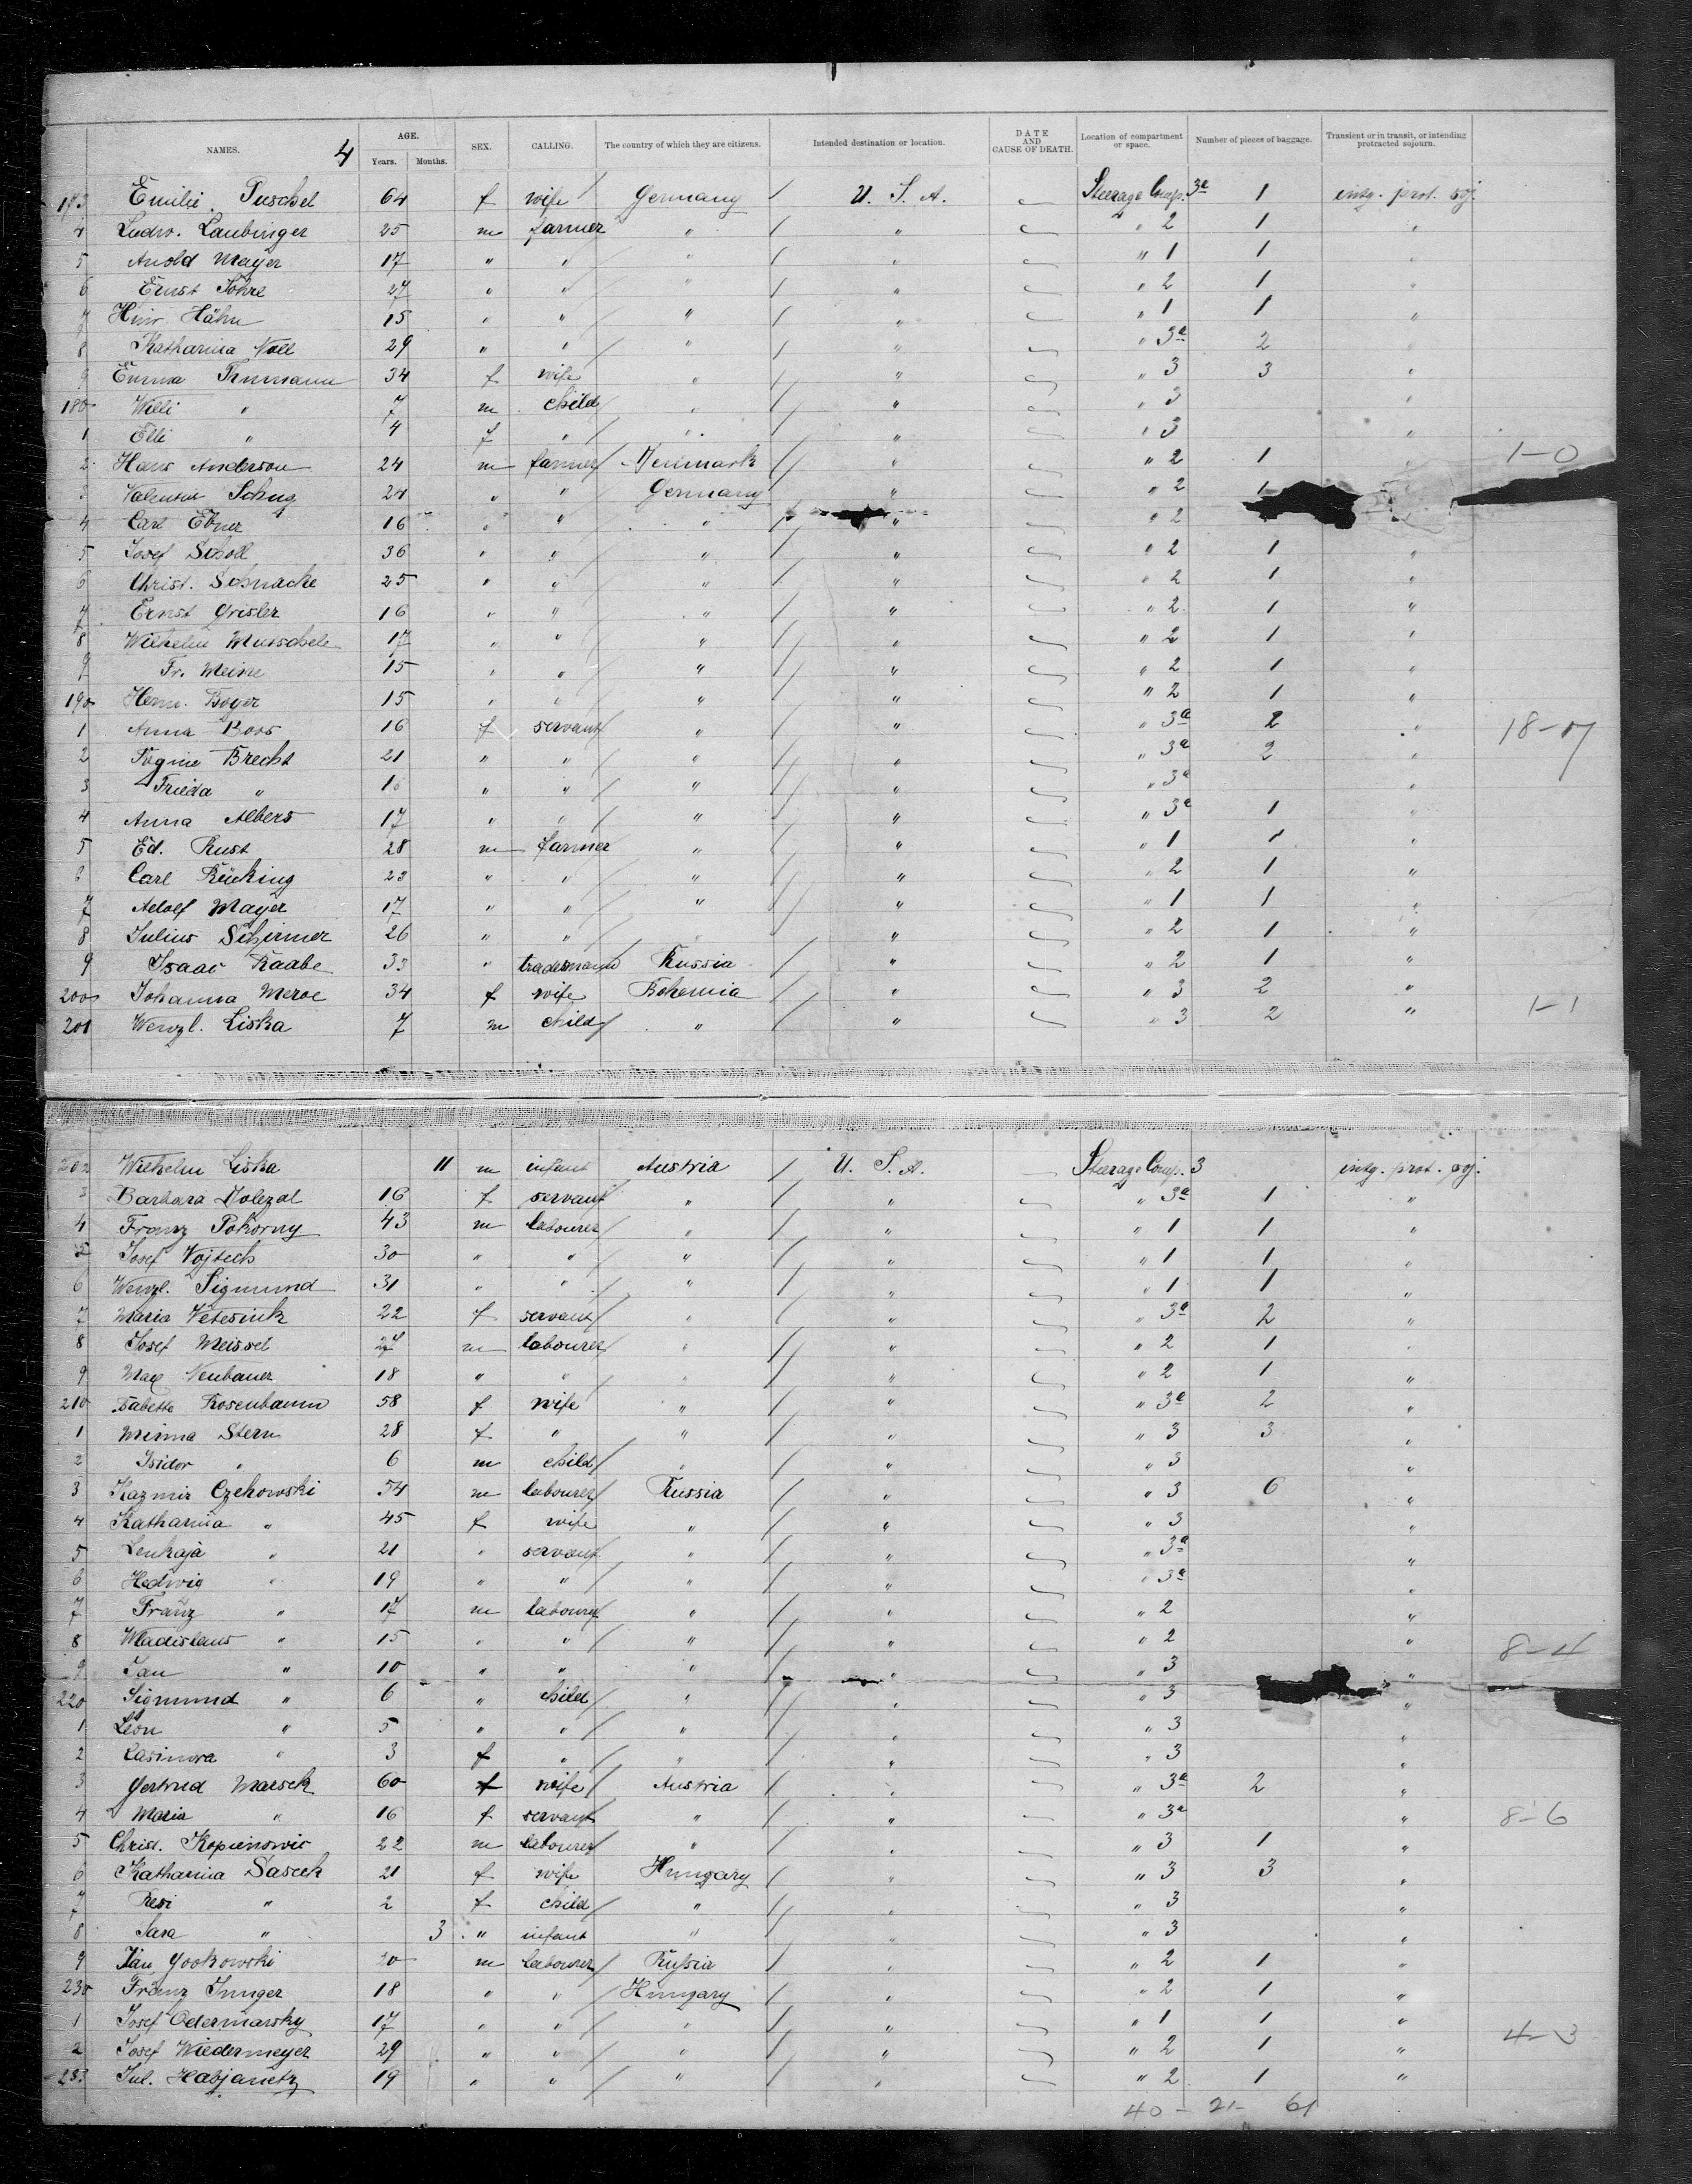 NAMES. 4 AGE. Years. Months. SEX. CALLING. The country of which they are citizens. Intended destination or location. DATE AND CAUSE OF DEATH. Location of compartment or space. Number of pieces of baggage. Transient or in transit, or intending protracted sojourn.
173 Emilie Puschel 64 f wife Germany U. S. A. Steerage Comp. 3a 1 intg. prot. soj.
4 Ludw. Laubinger 25 m farmer " " " 2 1 "
5 Arnold Mayer 17 " " " " " 1 1 "
6 Ernst Söhre 27 " " " " " 2 1 "
7 Hinr. Hähn 15 " " " " " 1 1 "
8 Katharina Noll 29 " " " " " 3a 2 "
9 Emma 34 f wife " " " 3 3 "
180 Willi " 7 m child " " " 3 "
1 Elli " 4 f " " " " 3 "
2 Hans Anderson 24 m farmer Denmark " " 2 1 " 1-0
3 Valentin Schug 24 " " Germany " " 2 1
4 Carl Ebner 16 " " " " " 2
5 Josef Scholl 36 " " " " " 2 1 "
6 Christ. Schnacke 25 " " " " " 2 1 "
7 Ernst Grisler 16 " " " " " 2 1 "
8 Wilhelm Muschele 17 " " " " " 2 1 "
9 Fr. Meine 15 " " " " " 2 1 "
190 Herm. Boger 15 " " " " " 2 1 "
1 Anna Boos 16 f servant " " " 3a 2 " 18-17
2 Brecht 21 " " " " " 3a 2 "
3 Frieda " " " " " " 3a "
4 Anna Albers 17 " " " " " 3a 1 "
5 Ed. Rust 28 m farmer " " " 1 1 "
6 Carl Rücking 23 " " " " " 2 1 "
7 Adolf Mayer 17 " " " " " 1 1 "
8 Julius Schirmer 26 " " " " " 2 1 "
9 Isaac Raabe 33 " tradesmann Russia " " 2 1 "
200 Johanna Meroe 34 f wife Bohemia " " 3 2 "
201 Wenzl. Liska 7 m child " " " 3 2 " 1-1
202 Wilhelm Liska 11 m infant Austria U. S. A. Steerage Comp. 3 intg. prot. soj.
3 Barbara Dolezal 16 f servant " " " 3a 1 "
4 Franz Pokorny 43 m labourer " " " 1 1 "
5 Josef Vojtech 30 " " " " " 1 1 "
6 Wenzl. Sigmund 31 " " " " " 1 1 "
7 Maria Vetesnik 22 f servant " " " 3a 2 "
8 Josef Meissel m labourer " " " 2 1 "
9 Max Neubauer 18 " " " " " 2 1 "
210 Babette Rosenbaum 58 f wife " " " 3a 2 "
1 Minna Stern 28 f " " " " 3 3 "
2 Isidor " 6 m child " " " 3 "
3 Kazmir Czehowski 54 m labourer Russia " " 3 6 "
4 Katharina " 45 f wife " " " 3 "
5 Leukaja " 21 " servant " " " 3a "
6 Hedwig " 19 " " " " " 3a "
7 Franz " 17 m labourer " " " 2 "
8 Wladislaus " 15 " " " " " 2 " 8-4
9 Jan " 10 " " " " " 3 "
220 Sigmund " 6 " child " " " 3 "
1 Leon " 5 " " " " " 3 "
2 Casimira " 3 f " " " " 3 "
3 Gertrud Marsek 60 f wife Austria " " 3a 2 "
4 Maria " 16 f servant " " " 3a " 8-6
5 Christ. Kopienowic 22 m labourer " " " 3 1 "
6 Katharina Sascek 21 f wife Hungary " " 3 3 "
7 Resi " 2 f child " " " 3 "
8 Sara " 3 " infant " " " 3 "
9 Jan Gookowski m labourer Russia " " 2 1 "
230 Franz Junger 18 " " Hungary " " 2 1 "
1 Josef Odermarsky 17 " " " " " 1 1 " 4-3
2 Josef Wiedermeyer 29 " " " " " 2 1 "
233 Jul. Habjanetz 19 " " " " " 2 1 "
40 - 21 - 61